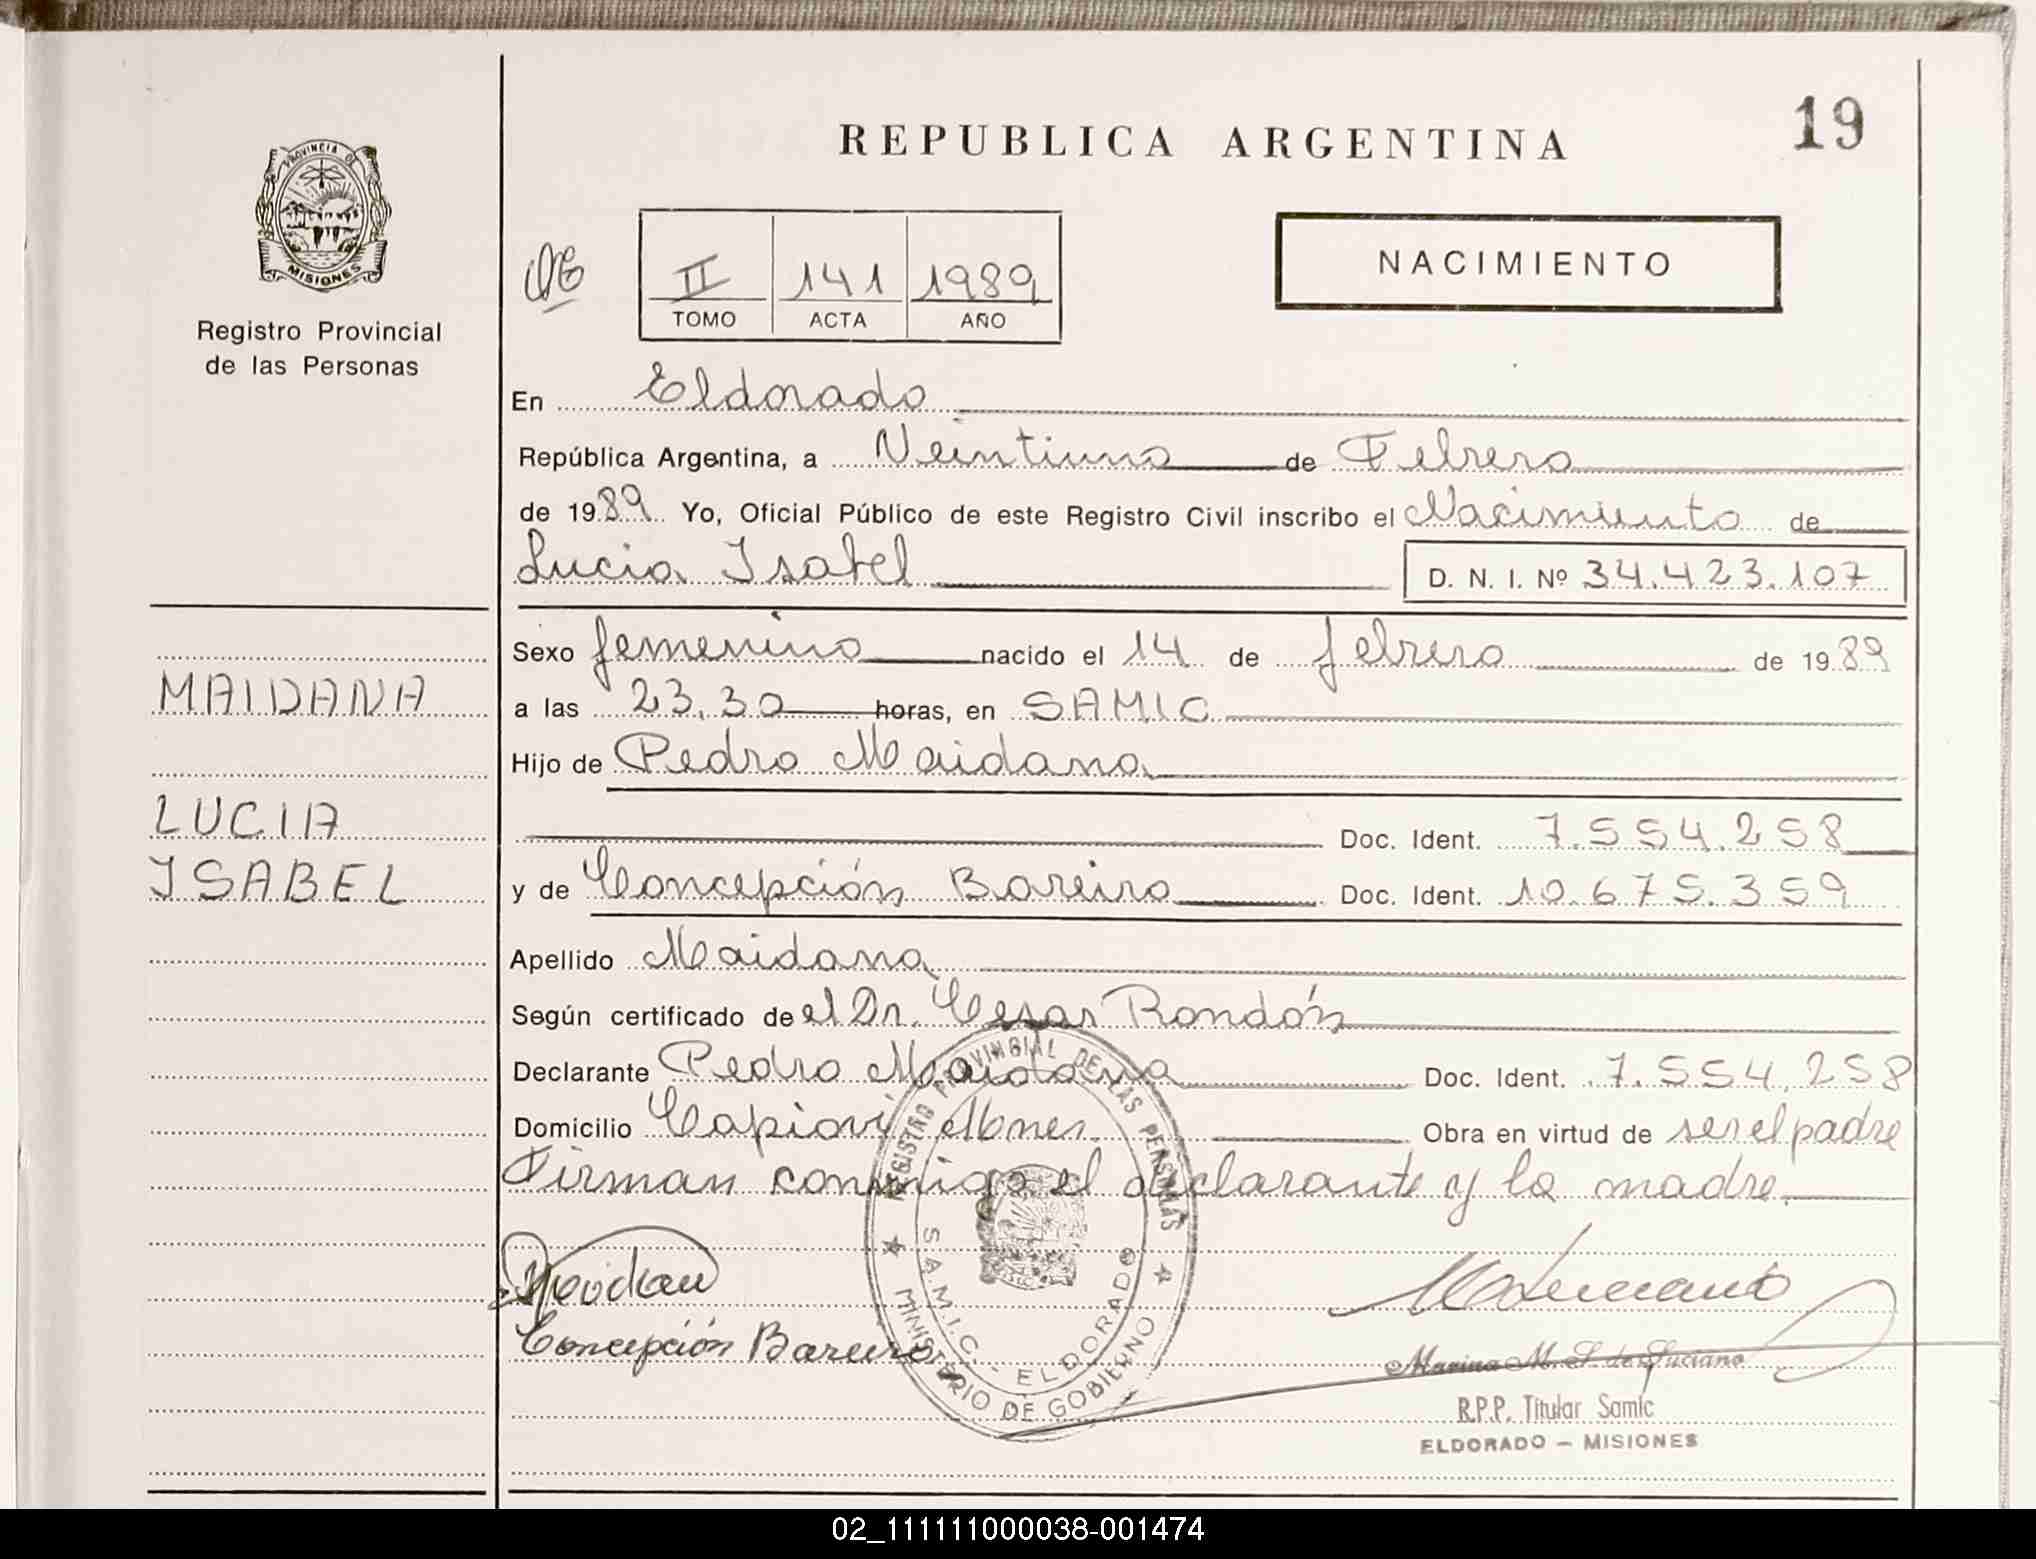 REPUBLICA ARGENTINA
19
PROVINCIA DE
MISIONES
Registro Provincial
de las Personas
II 141 1989
TOMO ACTA AÑO
NACIMIENTO
En Eldorado
República Argentina, a Veintiuno de Febrero
de 1989 Yo, Oficial Público de este Registro Civil inscribo el Nacimiento de
Lucia Isabel D. N. I. Nº 34.423.107
Sexo femenino nacido el 14 de febrero de 1989
MAIDANA
a las 23.30 horas, en SAMIC
Hijo de Pedro Maidana
LUCIA
Doc. Ident. 7.554.258
ISABEL
y de Concepción Bareiro Doc. Ident. 10.675.359
Apellido Maidana
Según certificado de el Dr. Cesar Rondón
Declarante Pedro Maidana Doc. Ident. 7.554.258
Domicilio Capiovi Mnes. Obra en virtud de ser el padre
Firman conmigo el declarante y la madre.
Concepción Bareiro
REGISTRO PROVINCIAL DE LAS PERSONAS
S.A.M.I.C. - ELDORADO
MINISTERIO DE GOBIERNO
Marina M. S. de Luciano
R.P.P. Titular Samic
ELDORADO - MISIONES
02_111111000038-001474